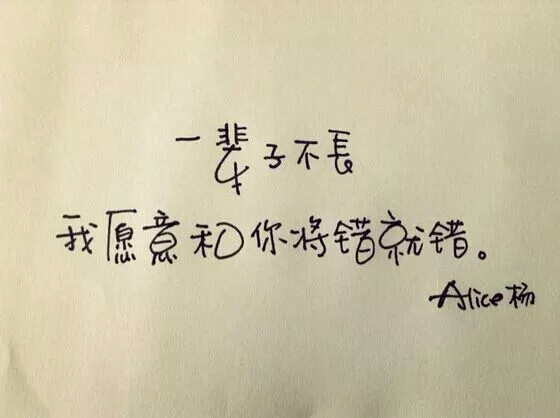 一辈子不長
我愿意和你将错就错。
Alice杨